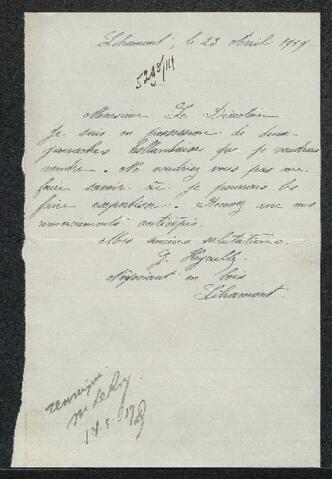 Libramont, le 23 Avril 1919.
5298/111
Monsieur Le Directeur
Je suis en possession de deux
gouaches hollandaise que je voudrais
vendre. Ne voudriez vous pas me
faire savoir si je pourrais les
faire expertiser. Recevez avec mes
remerciements anticipés
Mes sincères salutations.
Négociant en bois
Libramont.
renseigné
14.5.1919